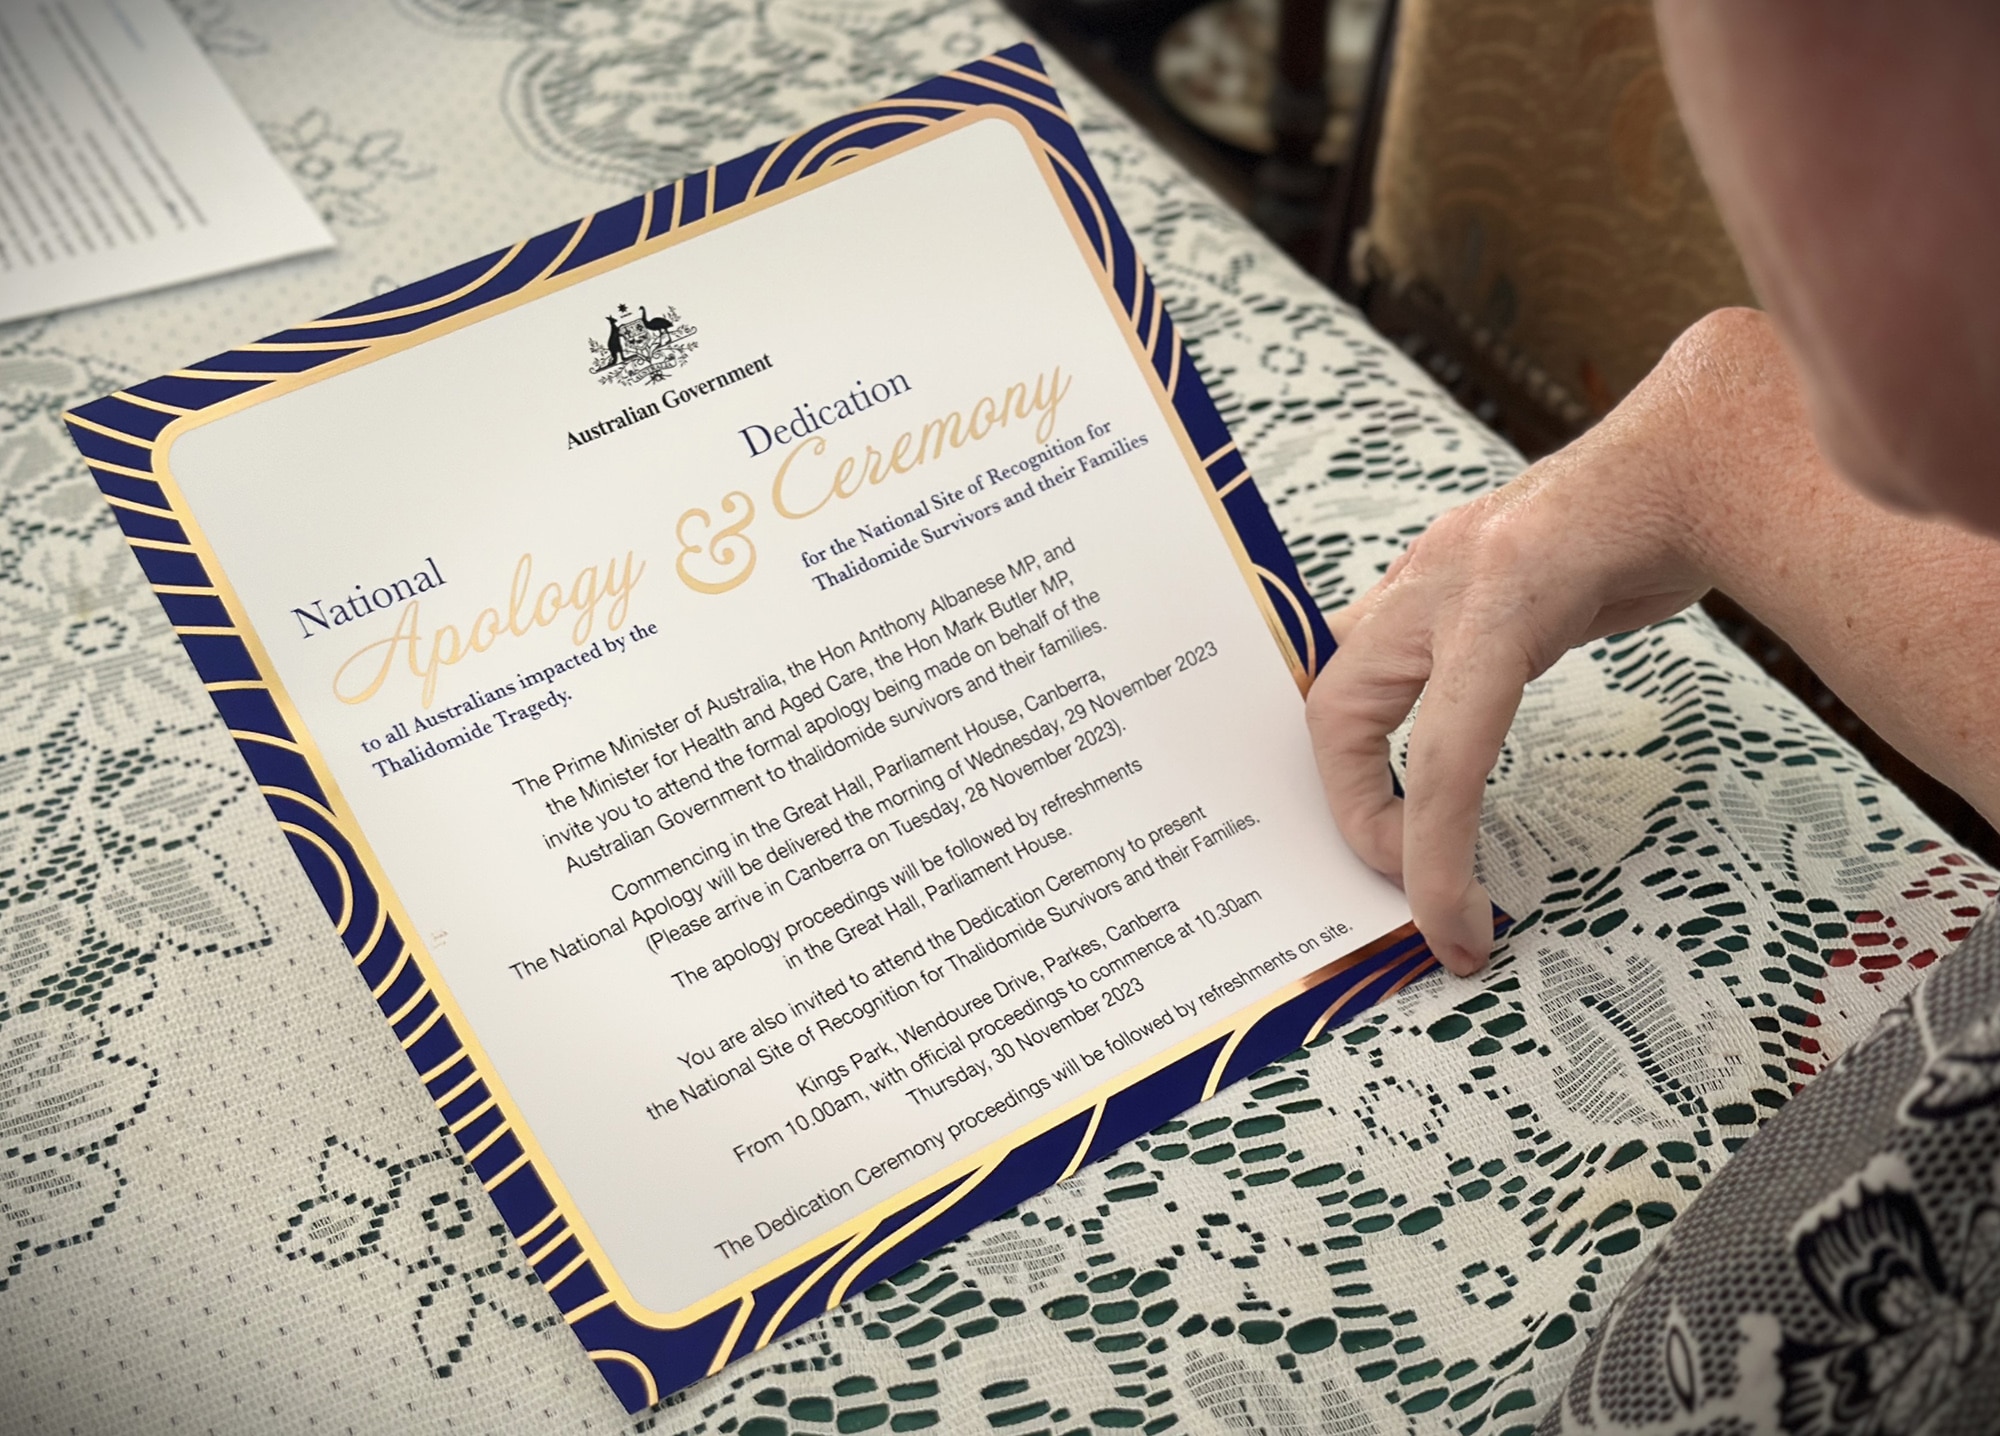 Australian Government
National
Apology
to all Australians impacted by the
Thalidomide Tragedy.
&
Dedication
Ceremony
for the National Site of Recognition for
Thalidomide Survivors and their Families
The Prime Minister of Australia, the Hon Anthony Albanese MP, and
the Minister for Health and Aged Care, the Hon Mark Butler MP,
invite you to attend the formal apology being made on behalf of the
Australian Government to thalidomide survivors and their families.
Commencing in the Great Hall, Parliament House, Canberra,
The National Apology will be delivered the morning of Wednesday, 29 November 2023
(Please arrive in Canberra on Tuesday, 28 November 2023).
The apology proceedings will be followed by refreshments
in the Great Hall, Parliament House.
You are also invited to attend the Dedication Ceremony to present
the National Site of Recognition for Thalidomide Survivors and their Families.
Kings Park, Wendouree Drive, Parkes, Canberra
From 10.00am, with official proceedings to commence at 10.30am
Thursday, 30 November 2023
The Dedication Ceremony proceedings will be followed by refreshments on site.